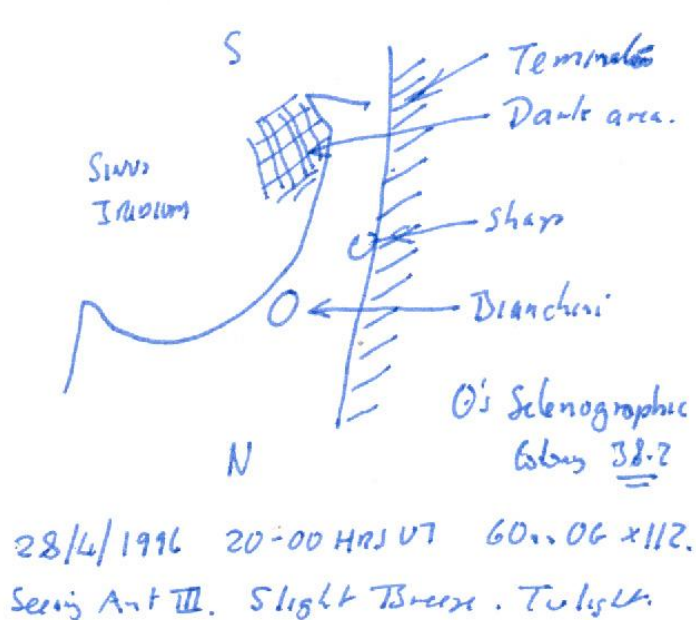 S
Terminator
Dark area.
SINUS
IRIDIUM
Sharp
Bianchini
O's Selenographic
Colong 38.2
N
28/4/1996 20-00 HRS UT 60mm OG x112.
Seeing Ant III. Slight Breeze. Twilight.